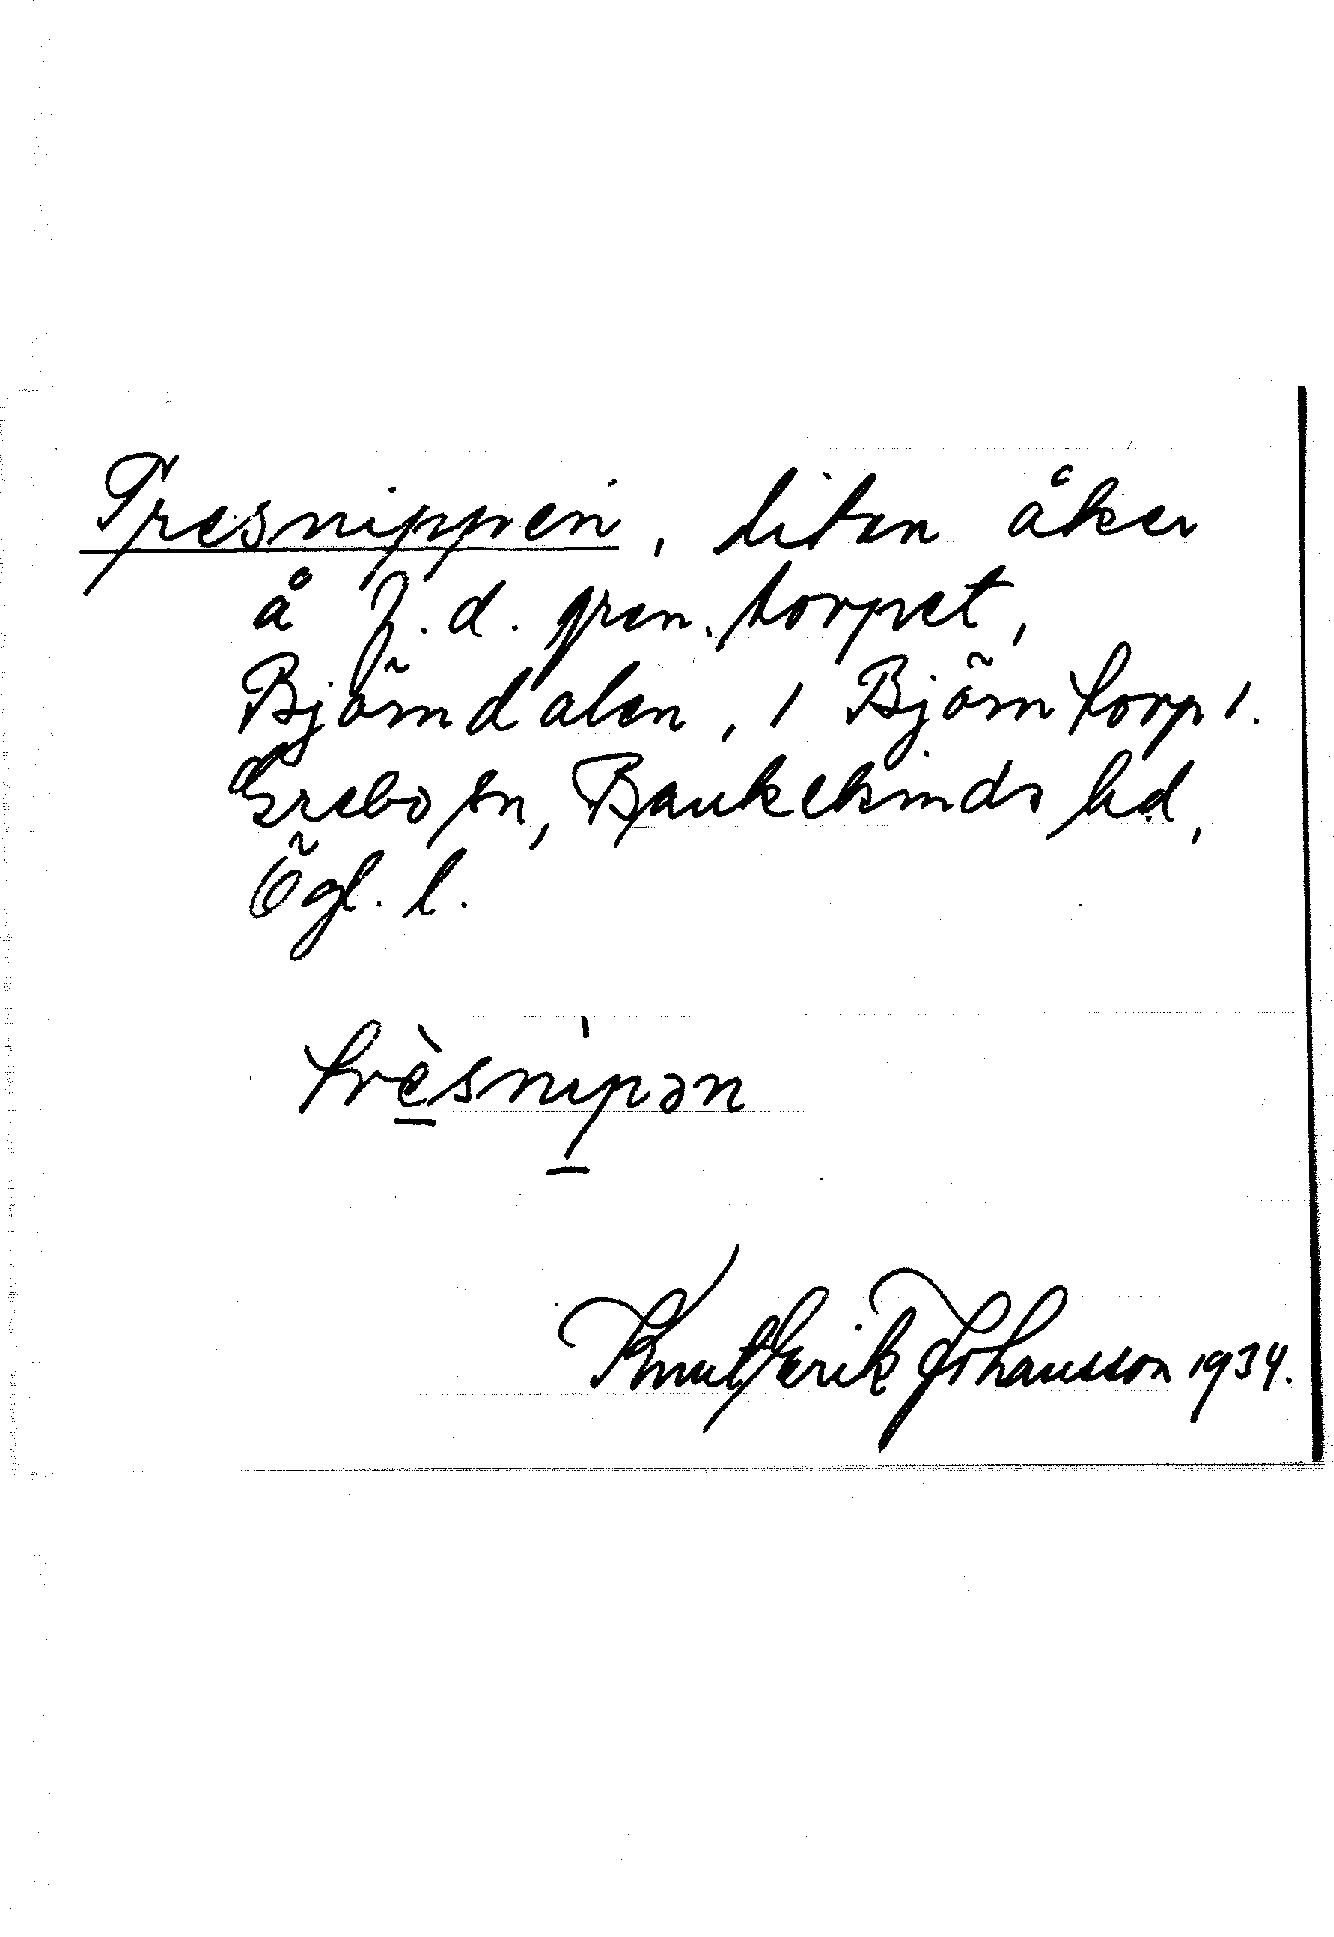 Tresnippen, liten åker
å f.d. gren. torpet,
Björndalen, i Björntorp 1.
Grebo sn, Bankekinds hd,
Ögl. l.
trèsnìpən
Knut Erik Johansson 1934.